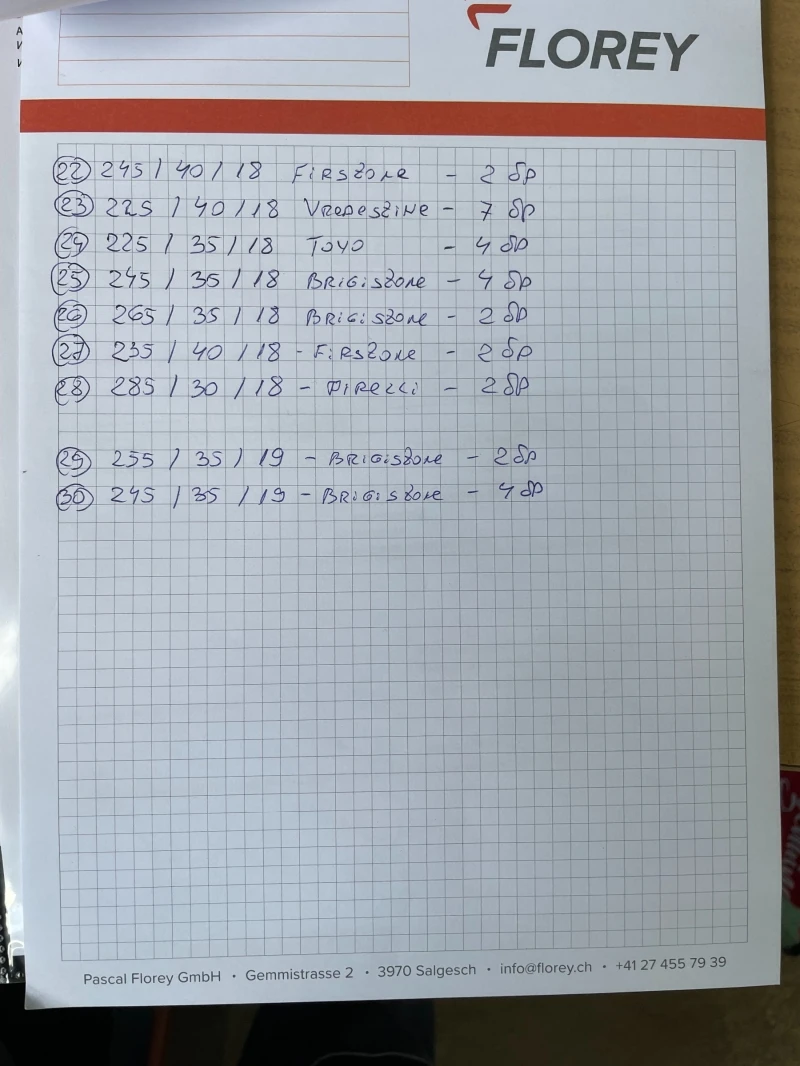 FLOREY
22 245 / 40 / 18 FIRSTONE - 2 бр
23 225 / 40 / 18 VREDESTINE - 7 бр
24 225 / 35 / 18 TOYO - 4 бр
25 245 / 35 / 18 BRIGISTONE - 4 бр
26 265 / 35 / 18 BRIGISTONE - 2 бр
27 235 / 40 / 18 - FIRSTONE - 2 бр
28 285 / 30 / 18 - PIRELLI - 2 бр
29 255 / 35 / 19 - BRIGISTONE - 2 бр
30 245 / 35 / 19 - BRIGISTONE - 4 бр
Pascal Florey GmbH • Gemmistrasse 2 • 3970 Salgesch • info@florey.ch • +41 27 455 79 39